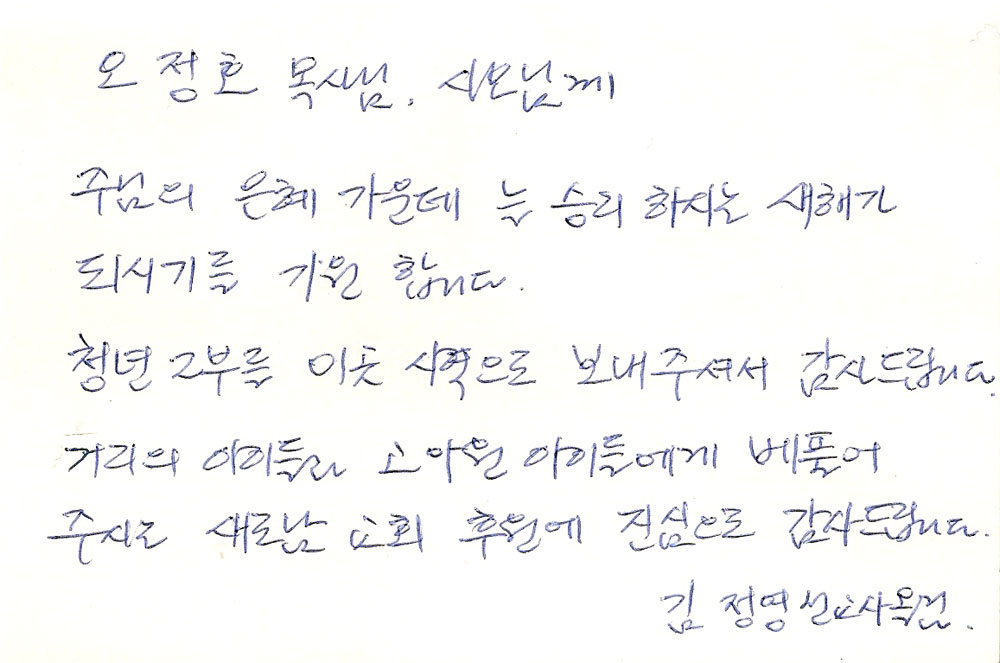 오 정호 목사님, 사모님께
주님의 은혜 가운데 늘 승리 하시는 새해가
되시기를 기원 합니다.
청년 2부를 이곳 사역으로 보내주셔서 감사드립니다.
거리의 아이들과 고아원 아이들에게 베풀어
주시는 새로남 교회 후원에 진심으로 감사드립니다.
김 정영 선교사